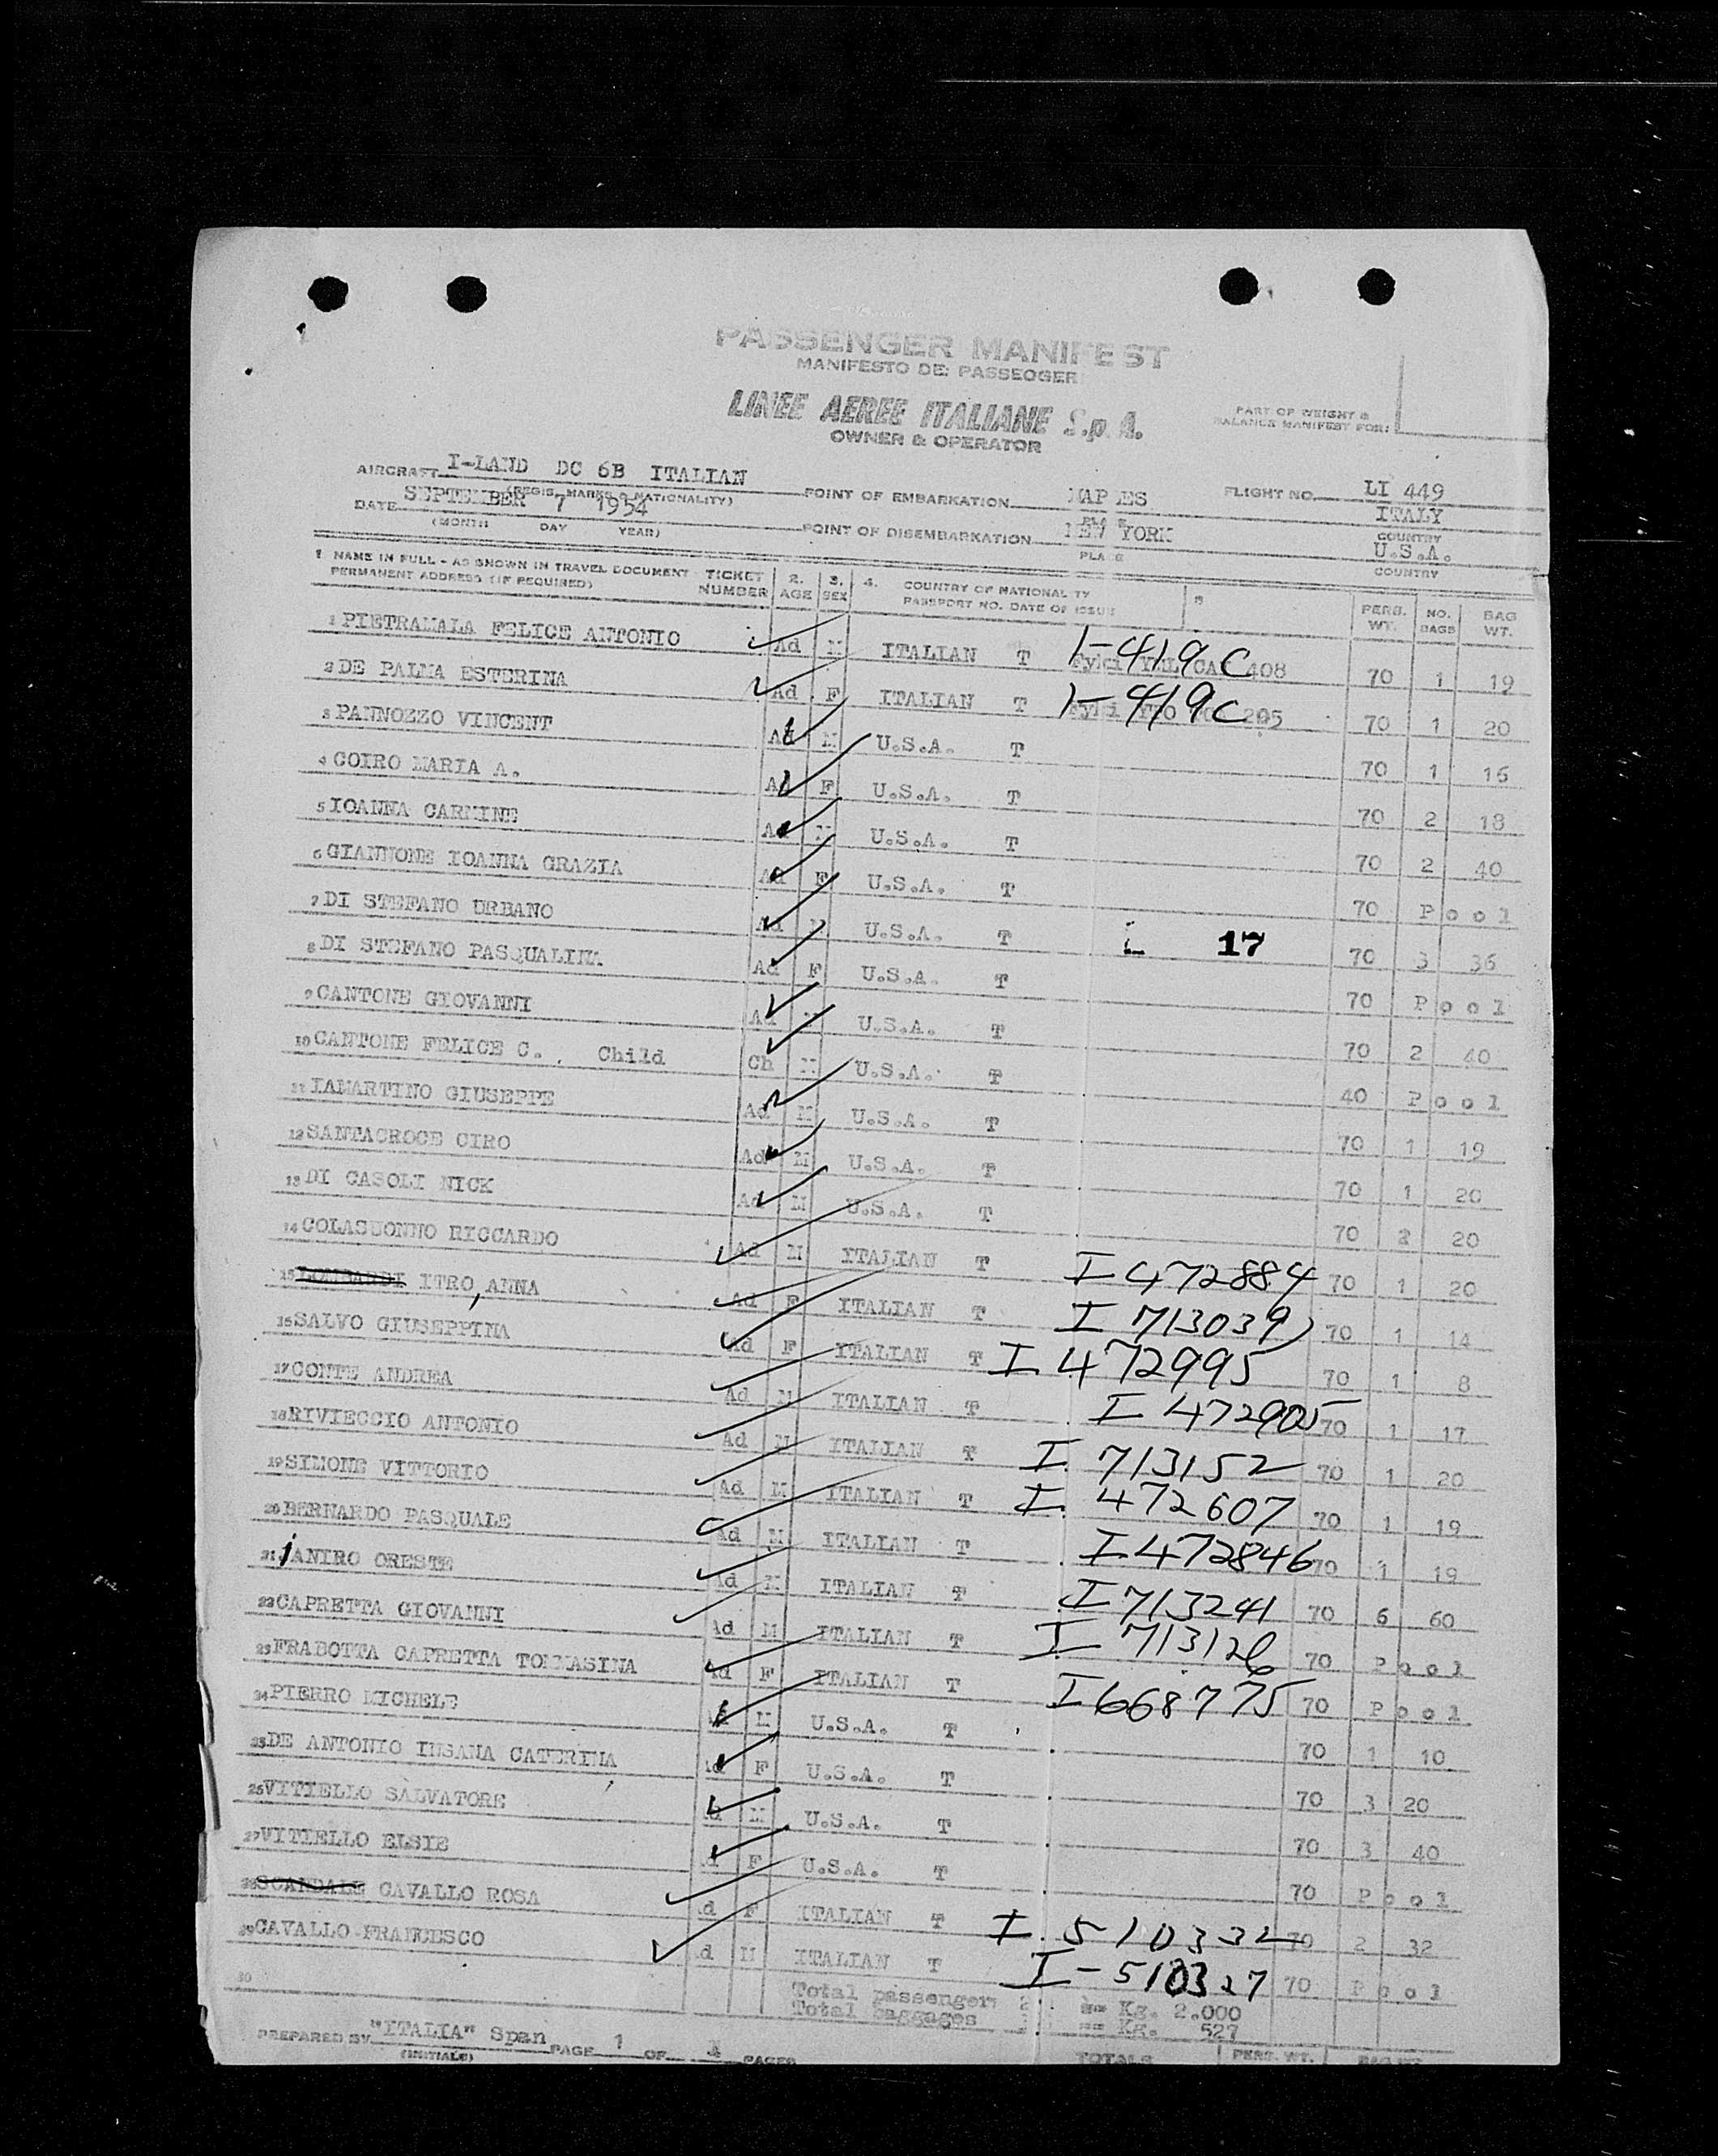 PASSENGER MANIFEST
MANIFESTO DEI PASSEGGERI
LINEE AEREE ITALIANE S.p.A.
OWNER & OPERATOR
PART OF WEIGHT &
BALANCE MANIFEST FOR:
AIRCRAFT I-LAND DC 6B ITALIAN POINT OF EMBARKATION NAPLES FLIGHT NO. LI 449
(REGIS. MARKS & NATIONALITY) PLACE ITALY COUNTRY
DATE SEPTEMBER 7 1954 POINT OF DISEMBARKATION NEW YORK U.S.A.
(MONTH DAY YEAR) PLACE COUNTRY
1 NAME IN FULL - AS SHOWN IN TRAVEL DOCUMENT TICKET 2. 3. 4. COUNTRY OF NATIONALITY PERS. NO. BAG
PERMANENT ADDRESS (IF REQUIRED) NUMBER AGE SEX PASSPORT NO. DATE OF ISSUE WT. BAGS WT.
1 PIETRAMALA FELICE ANTONIO Ad M ITALIAN T I-419C 408 70 1 19
2 DE PALMA ESTERINA Ad F ITALIAN T I-419C 205 70 1 20
3 PANNOZZO VINCENT Ad M U.S.A. T 70 1 16
4 COIRO MARIA A. Ad F U.S.A. T 70 2 18
5 IOANNA CARMINE Ad M U.S.A. T 70 2 40
6 GIANNONE IOANNA GRAZIA Ad F U.S.A. T 70 Pool
7 DI STEFANO URBANO Ad M U.S.A. T 17 70 3 36
8 DI STEFANO PASQUALINA Ad F U.S.A. T 70 Pool
9 CANTONE GIOVANNI Ad M U.S.A. T 70 2 40
10 CANTONE FELICE C., Child Ch M U.S.A. T 40 Pool
11 IAMARTINO GIUSEPPE Ad M U.S.A. T 70 1 19
12 SANTACROCE CIRO Ad M U.S.A. T 70 1 20
13 DI CASOLI NICK Ad M U.S.A. T 70 2 20
14 COLASUONNO RICCARDO Ad M ITALIAN T I 472884 70 1 20
15 LOMBARDI ITRO, ANNA Ad F ITALIAN T I 713039 70 1 14
16 SALVO GIUSEPPINA Ad F ITALIAN T I 472995 70 1 8
17 CONTE ANDREA Ad M ITALIAN T I 472905 70 1 17
18 RIVIECCIO ANTONIO Ad M ITALIAN T I 713152 70 1 20
19 SIMONE VITTORIO Ad M ITALIAN T I 472607 70 1 19
20 BERNARDO PASQUALE Ad M ITALIAN T I 472846 70 1 19
21 jANIRO ORESTE Ad M ITALIAN T I 713241 70 6 60
22 CAPRETTA GIOVANNI Ad M ITALIAN T I 713126 70 Pool
23 FRABOTTA CAPRETTA TOMMASINA Ad F ITALIAN T I 668775 70 Pool
24 PIERRO MICHELE Ad M U.S.A. T 70 1 10
25 DE ANTONIO INSANA CATERINA Ad F U.S.A. T 70 3 20
26 VITIELLO SALVATORE Ad M U.S.A. T 70 3 40
27 VITIELLO ELSIE d F U.S.A. T 70 Pool
28 SCANDALE CAVALLO ROSA d F ITALIAN T I 510332 70 2 32
29 CAVALLO FRANCESCO d M ITALIAN T I-510327 70 Pool
30 Total passengers == Kg. 2.000
Total baggages == Kg. 527
PREPARED BY "ITALIA" Span PAGE 1 OF PAGES
(INITIALS) TOTALS PERS. WT. BAG WT.